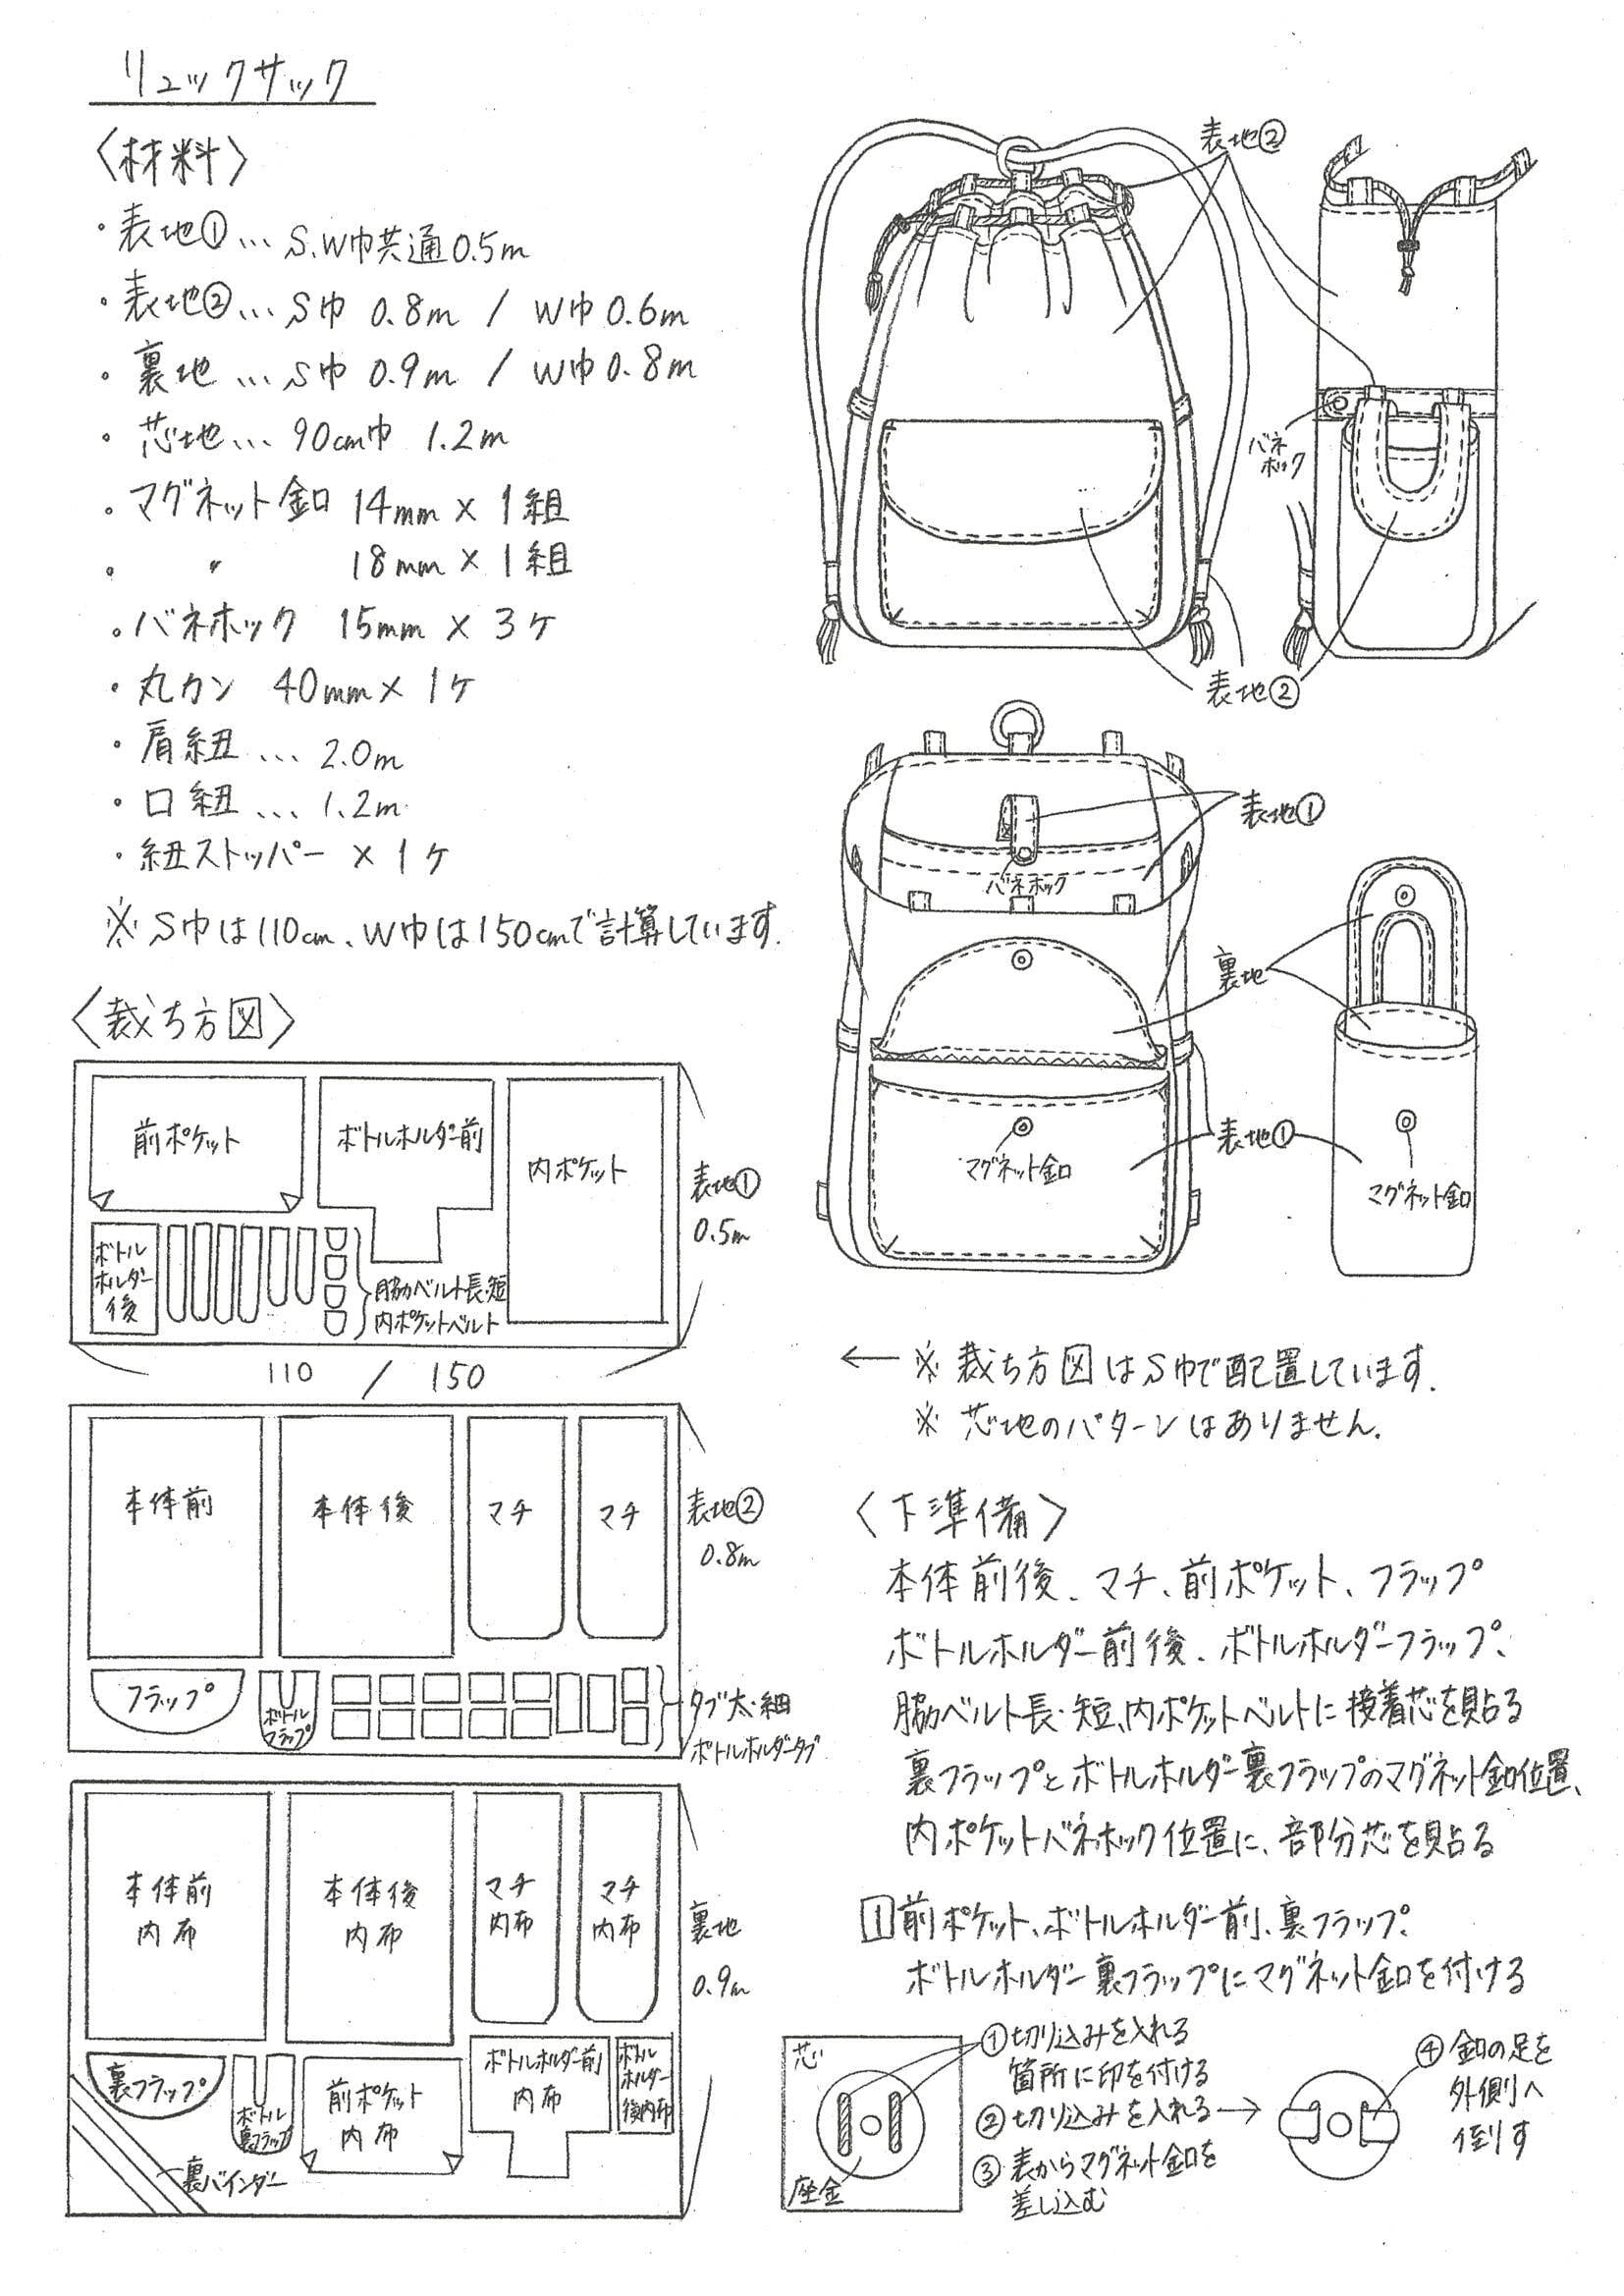 リュックサック
〈材料〉
・表地①…S.W巾共通0.5m
・表地②…S巾 0.8m / W巾0.6m
・裏地…S巾 0.9m / W巾0.8m
・芯地…90cm巾 1.2m
・マグネット釦 14mm×1組
・〃 18mm×1組
・バネホック 15mm×3ケ
・丸カン 40mm×1ケ
・肩紐…2.0m
・口紐…1.2m
・紐ストッパー×1ケ
※S巾は110cm、W巾は150cmで計算しています.
表地②
バネ
ホック
表地②
表地①
バネホック
裏地
表地①
マグネット釦
マグネット釦
〈裁ち方図〉
前ポケット
ボトルホルダー前
内ポケット
ボトル
ホルダー
後
脇ベルト長・短
内ポケットベルト
表地①
0.5m
110 / 150
本体前
本体後
マチ
マチ
表地②
0.8m
フラップ
ボトル
フラップ
タブ太・細
ボトルホルダータブ
本体前
内布
本体後
内布
マチ
内布
マチ
内布
裏地
0.9m
裏フラップ
ボトル
裏フラップ
前ポケット
内布
ボトルホルダー前
内布
ボトル
ホルダー
後内布
裏バインダー
←※裁ち方図はS巾で配置しています.
※芯地のパターンはありません.
〈下準備〉
本体前後、マチ、前ポケット、フラップ
ボトルホルダー前後、ボトルホルダーフラップ、
脇ベルト長・短、内ポケットベルトに接着芯を貼る
裏フラップとボトルホルダー裏フラップのマグネット釦位置、
内ポケットバネホック位置に、部分芯を貼る
1 前ポケット、ボトルホルダー前、裏フラップ、
ボトルホルダー裏フラップにマグネット釦を付ける
芯
座金
①切り込みを入れる
箇所に印を付ける
②切り込みを入れる→
③表からマグネット釦を
差し込む
④釦の足を
外側へ
倒す